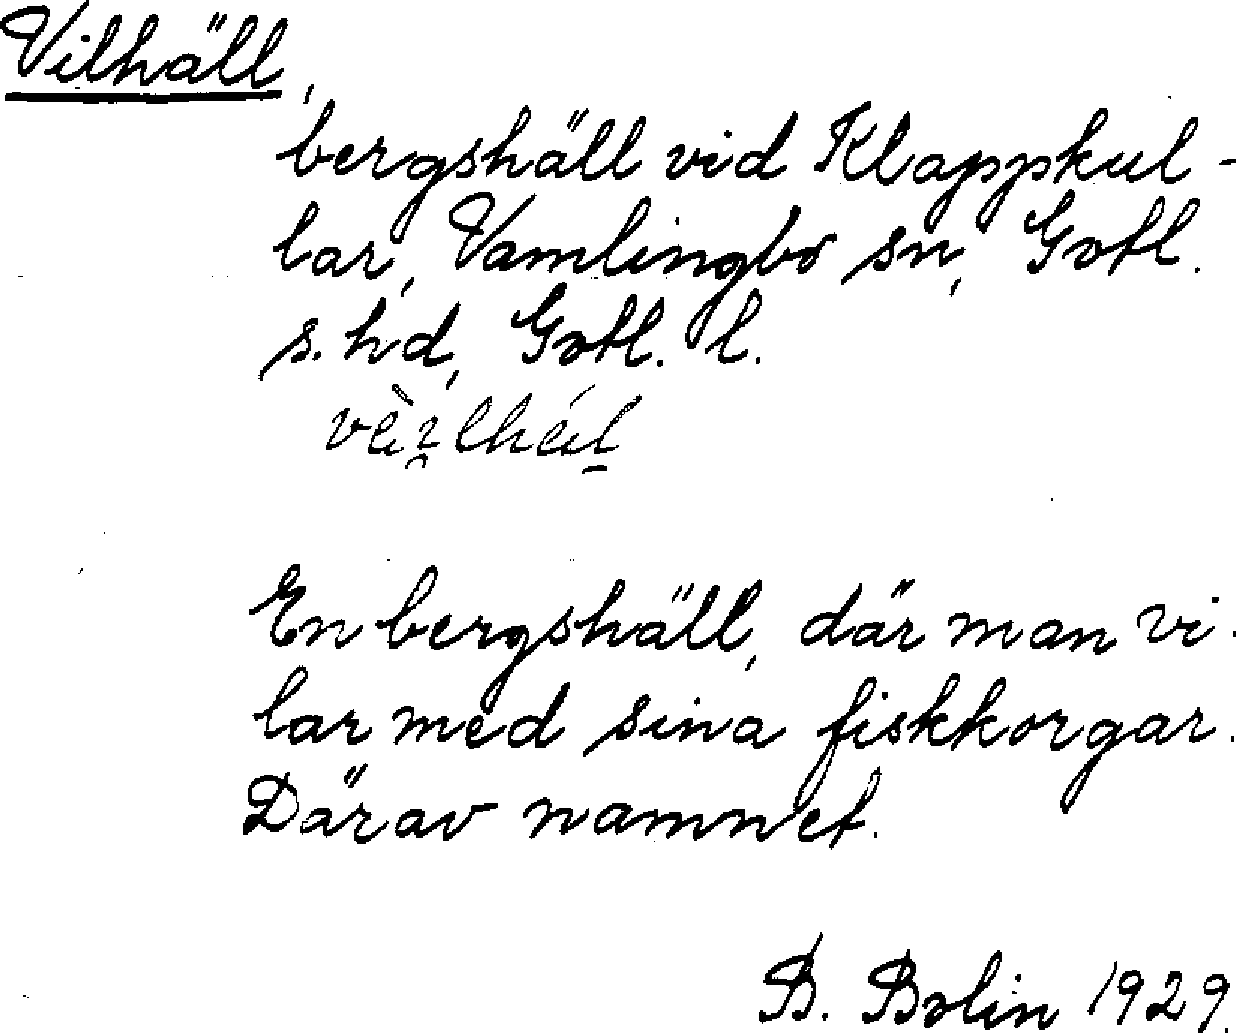 Vilhäll,
bergshäll vid Klappkul-
lar, Vamlingbo sn, Gotl.
s. hd, Gotl. l.
En bergshäll, där man vi-
lar med sina fiskkorgar.
Därav namnet.
B. Bolin 1929.